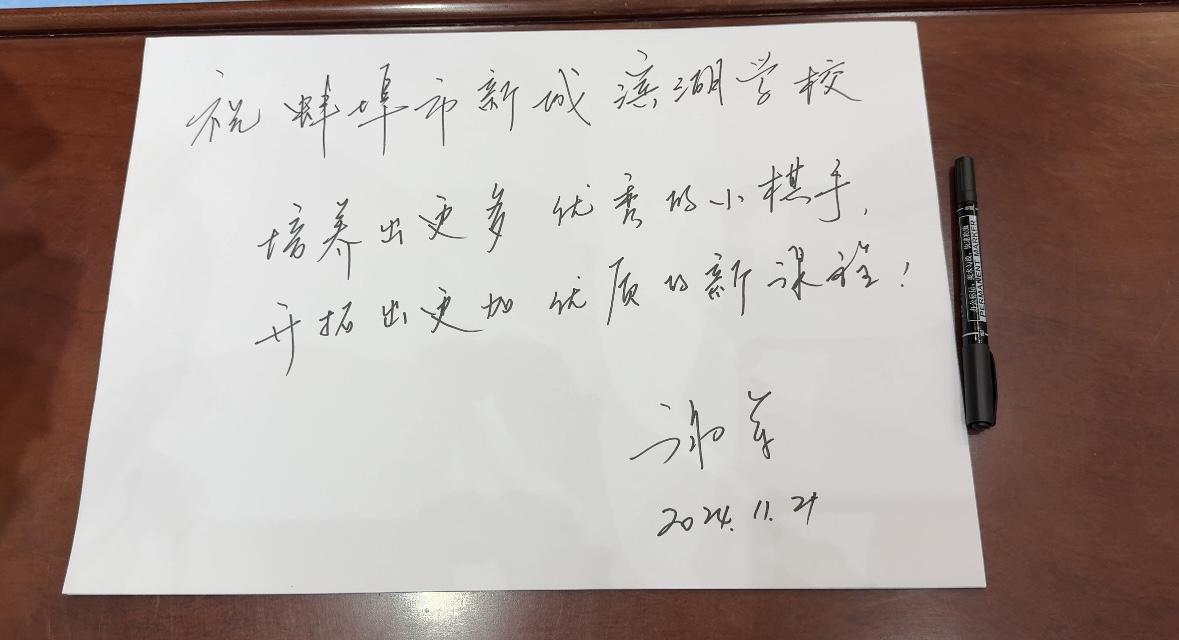 祝蚌埠市新城滨湖学校
培养出更多优秀的小棋手,
开拓出更加优质的新课程!
谢军
2024.11.21
PERMANENT MARKER